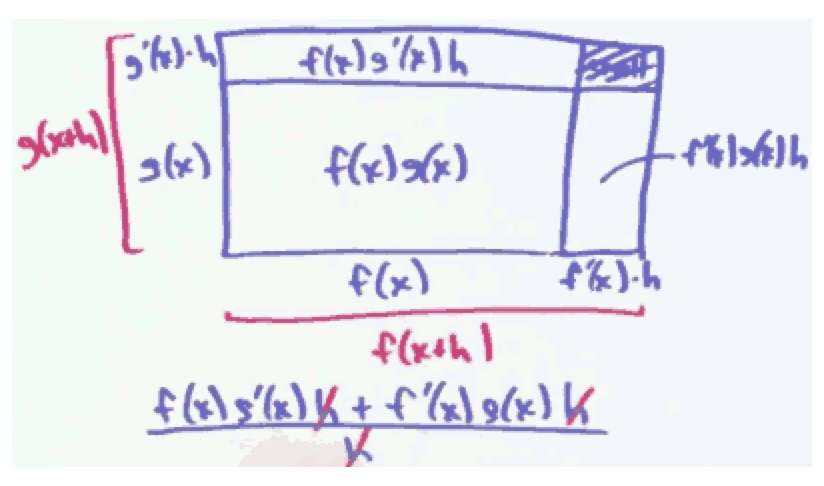 g'(x)·h f(x)g'(x)h
g(x+h) g(x) f(x)g(x) f'(x)g(x)h
f(x) f'(x)·h
f(x+h)
f(x)g'(x)h + f'(x)g(x)h
h